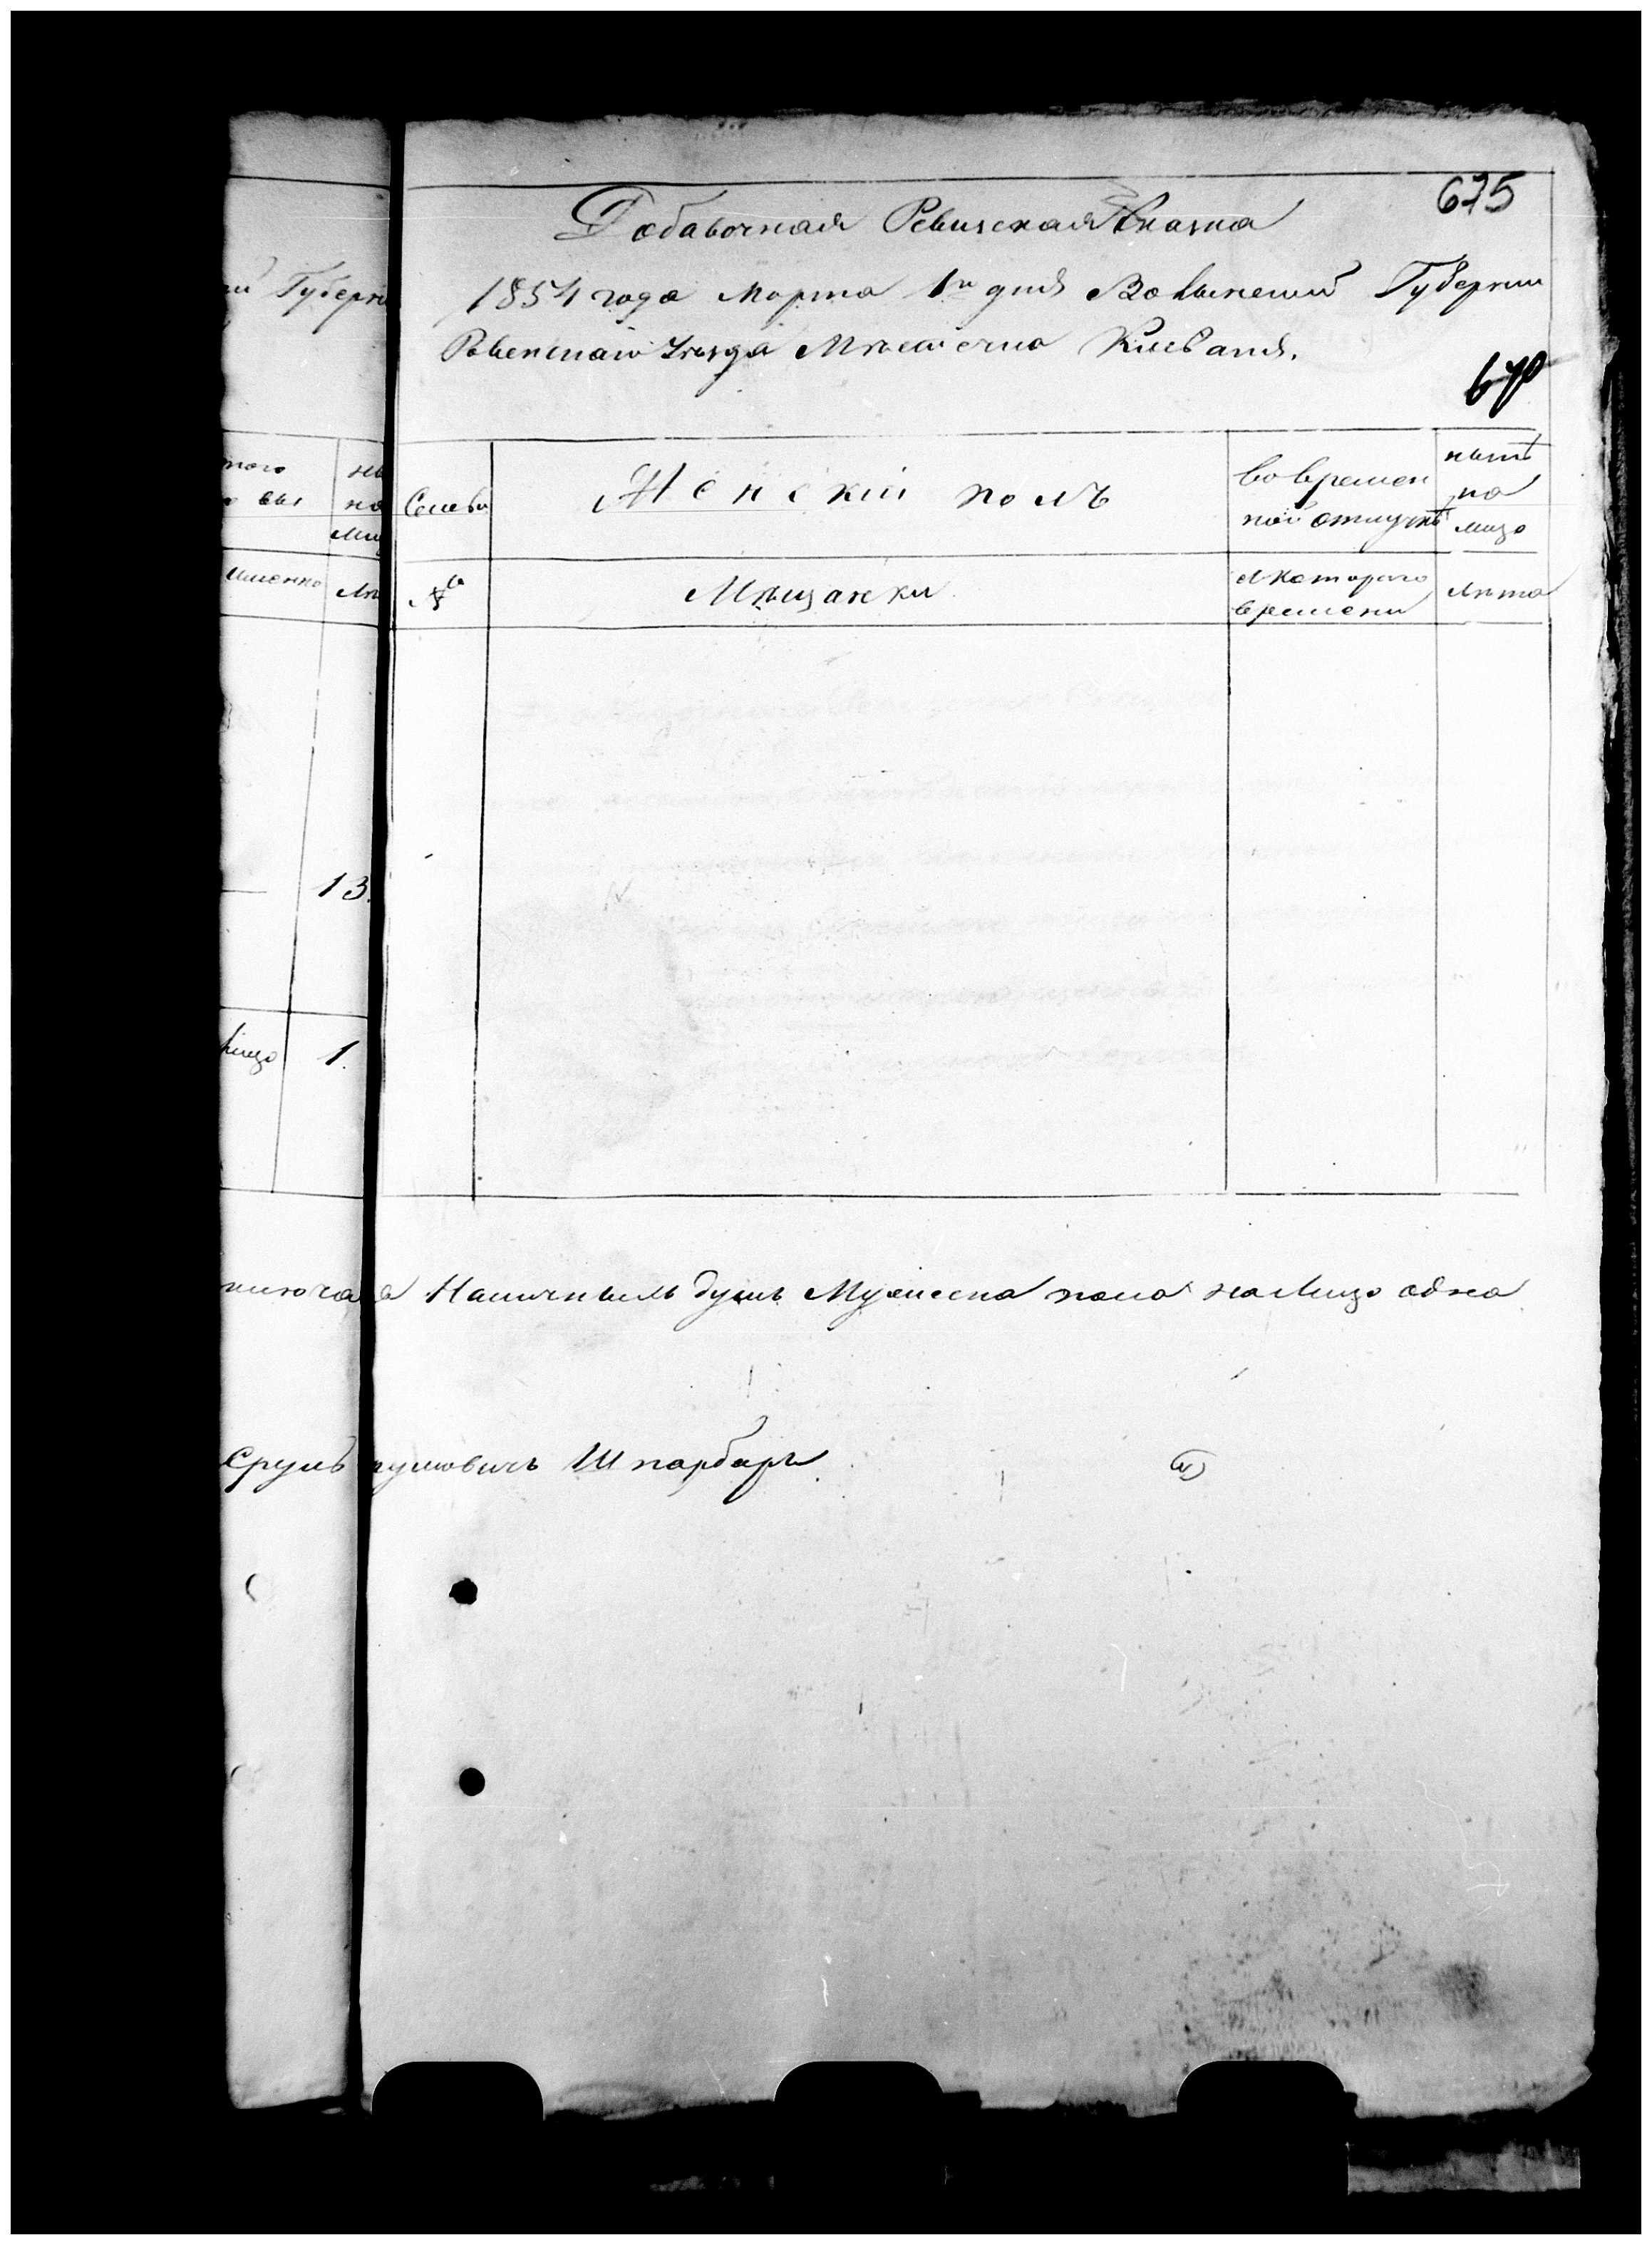 675
Добавочная Ревизская Сказка
1854 года Марта 1го дня Волынской Губернии
Ровенскаго Уезда Местечка Клевани.
670
Губерн
Семьи
Женскій полъ
во времен
ной отлучкѣ
нынѣ
на
лицо
№
Мѣщанки
съ котораго
времени
Лѣта
13.
лицо 1.
Наличныхъ душъ Мужеска пола на Лицо одна
Сруль Шпарберъ